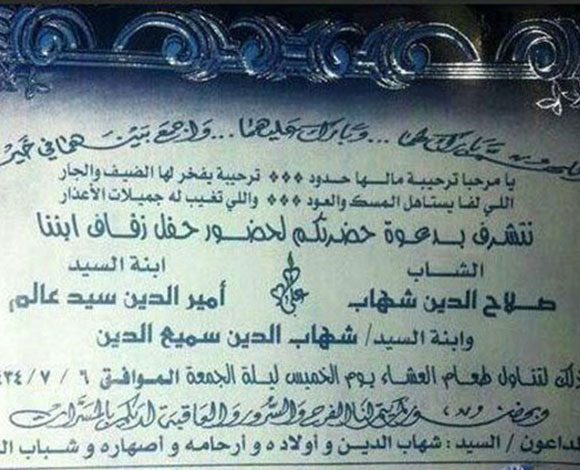 بارك لهما ... وبارك عليهما ... واجمع بينهما في خير
يا مرحبا ترحيبة مالها حدود *** ترحيبة يفخر لها الضيف والجار
اللي لفا يستاهل المسك والعود *** واللي تغيب له جميلات الأعذار
نتشرف بدعوة حضرتكم لحضور حفل زفاف ابننا
الشاب
ابنة السيد
صلاح الدين شهاب
أمير الدين سيد عالم
وابنة السيد/ شهاب الدين سميع الدين
لتناول طعام العشاء يوم الخميس ليلة الجمعة الموافق ٦ / ٧ / ٤٣٤
وبحضوركم يتم لنا الفرح والسرور والعاقبة لديكم بالمسرات
الداعون / السيد : شهاب الدين و أولاده و أرحامه و أصهاره و شباب